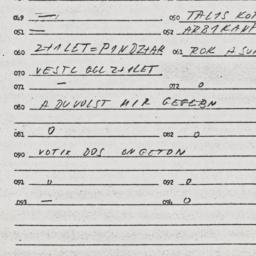 049 — 050 TALIS KOT
051 = 052 ARBIKANF
060 Z+1LET=PINDZHAK 061 ROK A SUR
070 VESTL GGL Z+1LET
071 — 072 0
080 A DU VOLST MIR GEGEBN
081 0 082 0
090 VOTIK DOS ONGETON
091 " 092 0
093 — 094 0